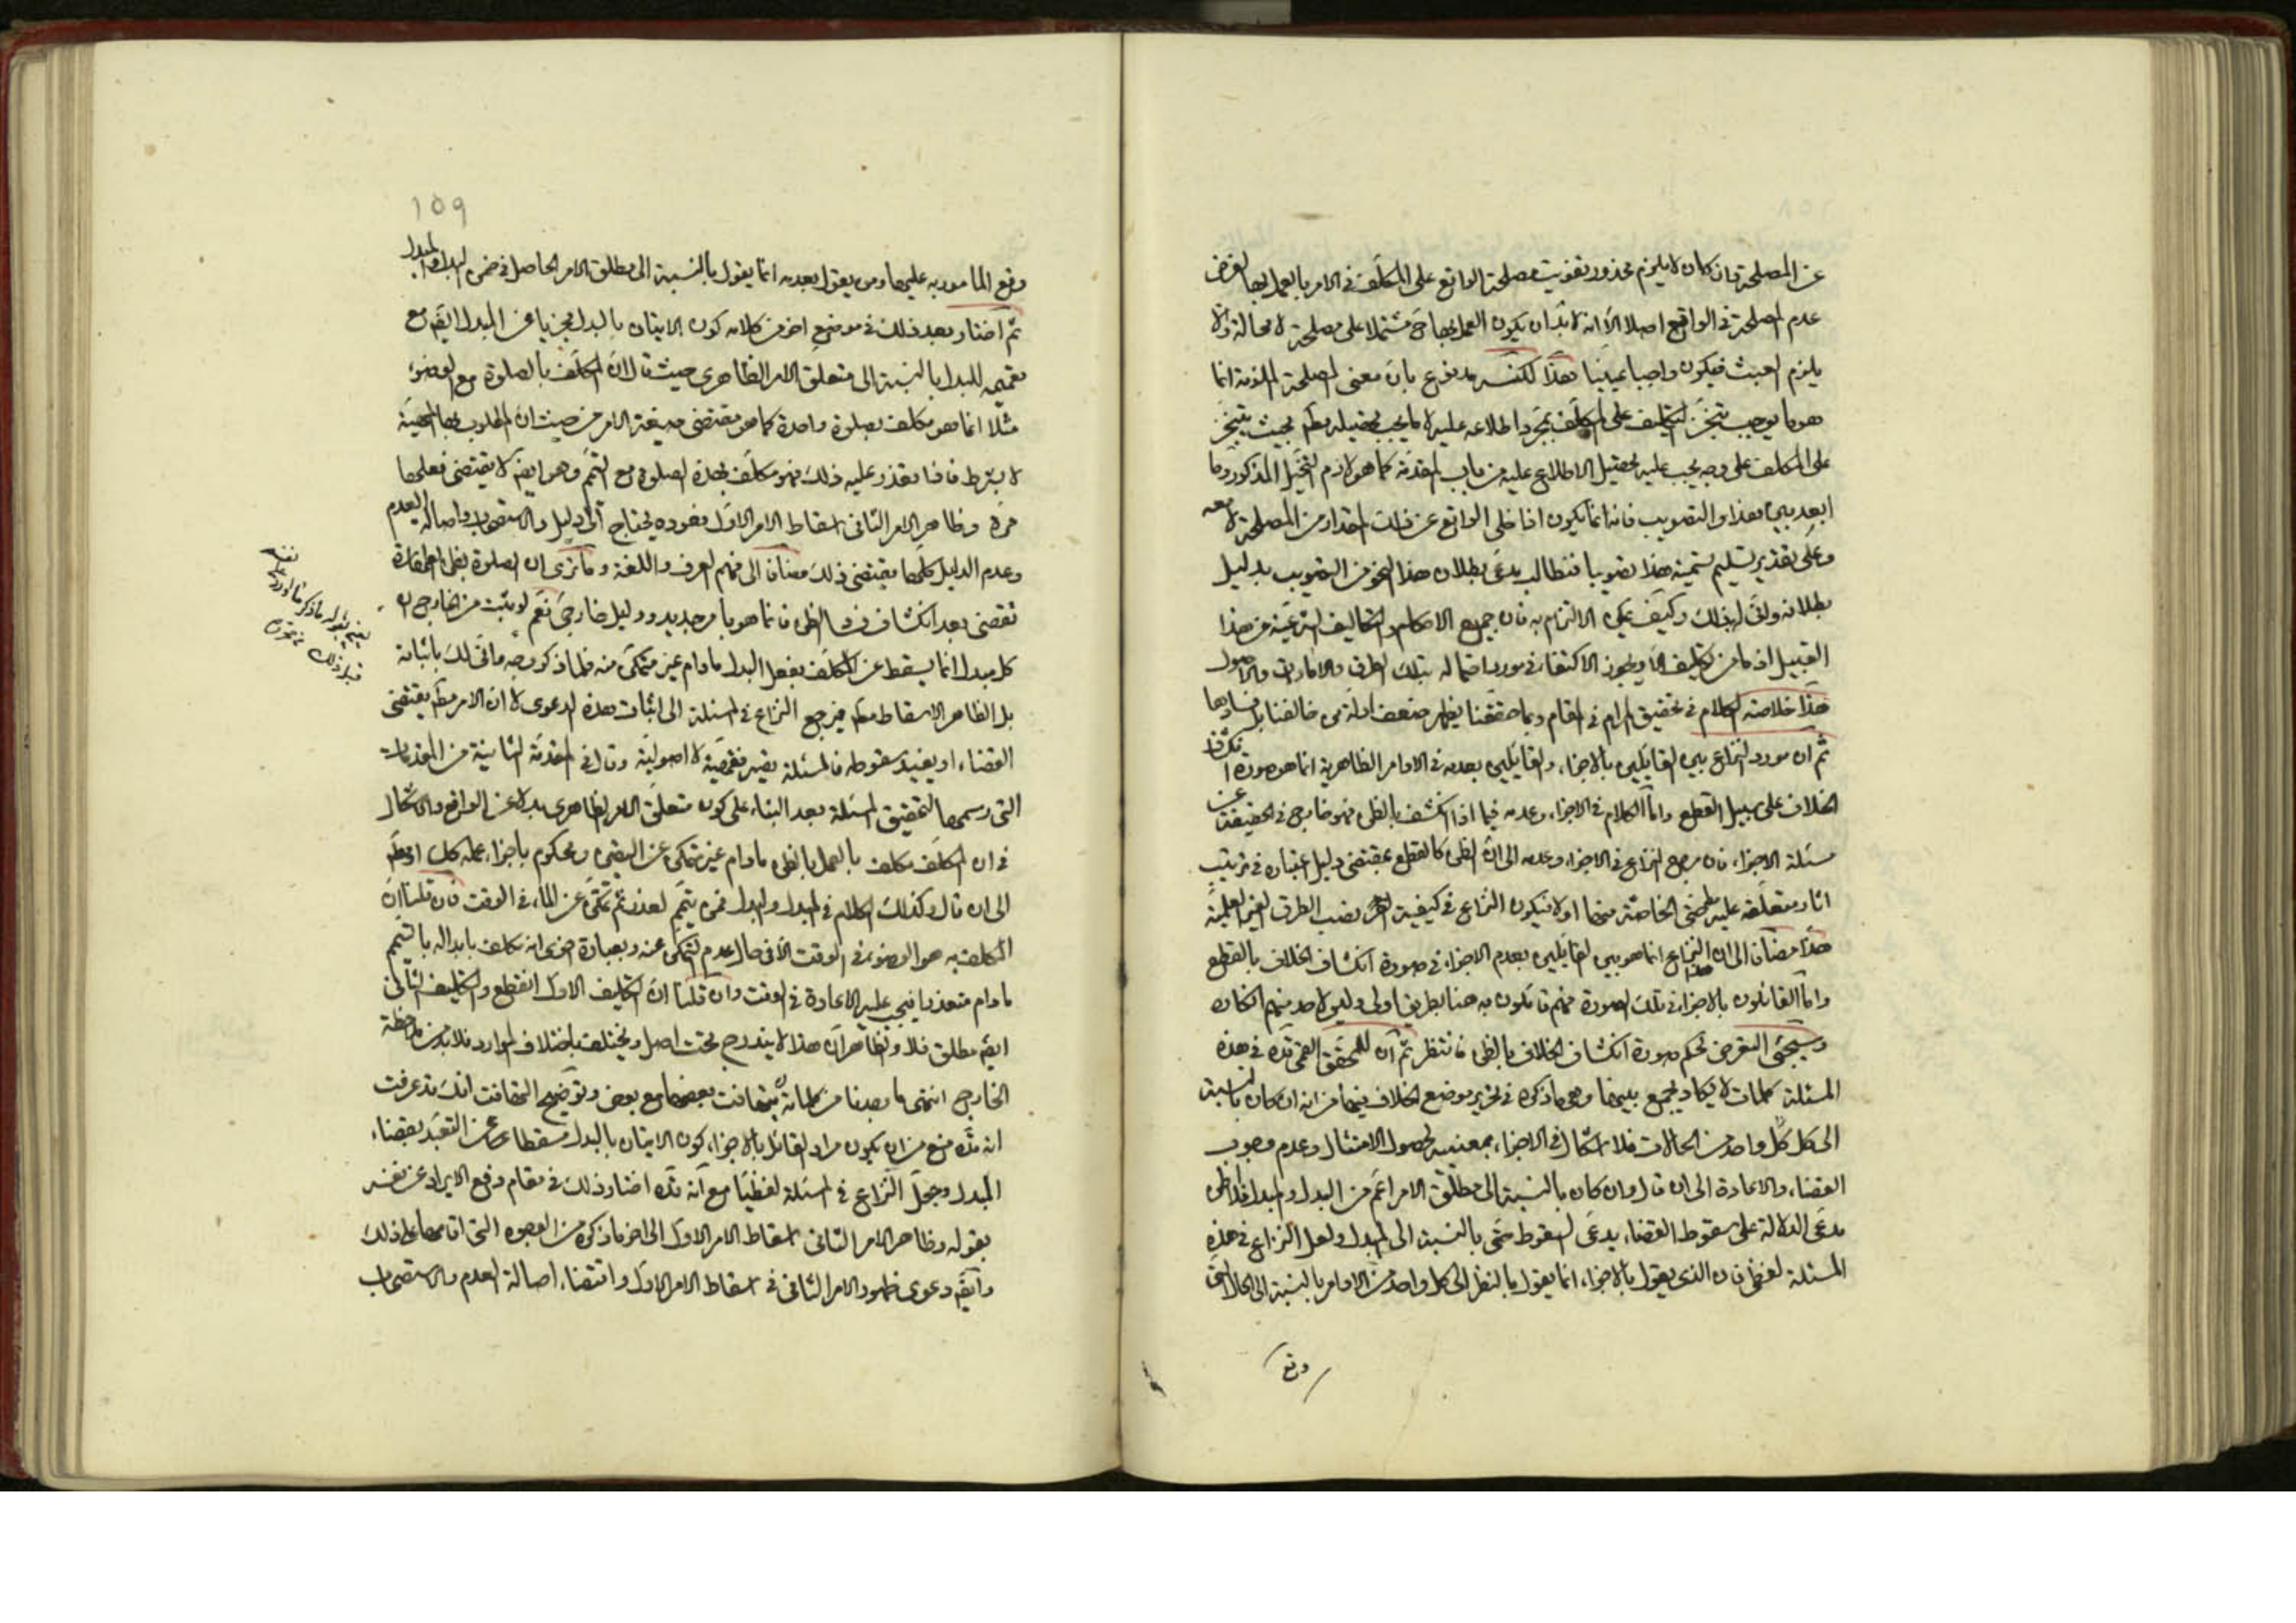 عن المصلحة فان كان لا يلزم محذور تفويت مصلحة الواقع على المكلف في الامر بالعمل بها لفرض
عدم المصلحة في الواقع اصلا الا انه لا بد ان يكون العمل بها ح مشتملا على مصلحة لا محالة والا
يلزم العبث فيكون واجبا عينيا هذا لكنه مدفوع بان معنى المصلحة الملزمة انما
هو ما يوجب تنجز التكليف على المكلف بمجرد اطلاعه عليه لا ما يجب تحصيله مط بحيث يتنجز
على المكلف على وجه يجب عليه تحصيل الاطلاع عليه من باب المقدمة كما هو لازم التخيل المذكور وما
ابعد بين هذا والتصويب فانه انما يكون اذا خلى الواقع عن ذلك المقدار من المصلحة لا معه
وعلى تقدير تسليم تسمية هذا تصويبا فنطالب مدعى بطلان هذا النحو من التصويب بدليل
بطلانه وانى له بذلك وكيف يمكن الالتزام به فان جميع الاحكام والتكاليف الشرعية من هذا
القبيل اذ ما من تكليف الا ويجوز الاكتفاء في مورد احتماله بتلك الطرق والامارات والاصول
هذا خلاصة الكلام في تحقيق المرام في المقام وبما حققنا يظهر ضعف ادلة من خالفنا بل فسادها
ثم ان مورد النزاع بين القائلين بالاجزاء والقائلين بعدمه في الاوامر الظاهرية انما هو صورة انكشاف
الخلاف على سبيل القطع واما الكلام في الاجزاء وعدمه فيما اذا انكشف بالظن فهو خارج في الحقيقة عن
مسئلة الاجزاء فان مرجع النزاع في الاجزاء وعدمه الى ان الظن كالقطع بمقتضى دليل اعتباره في ترتيب
اثار متعلقه عليه حتى الخاصة منها او لا فيكون النزاع في كيفية نصب الطرق الغير العلمية
هذا مضافا الى ان هذا النزاع انما هو بين القائلين بعدم الاجزاء في صورة انكشاف الخلاف بالقطع
واما القائلون بالاجزاء في تلك الصورة فهم قائلون به هنا بطريق اولى وليس لاحد منهم انكاره
وسيجئ التعرض لحكم صورة انكشاف الخلاف بالظن فانتظر ثم ان للمحقق القمي قده في هذه
المسئلة كلمات لا يكاد يجمع بينها وهي ما ذكره في تحرير موضع الخلاف فيها من انه ان كان بالنسبة
الى كل كل واحد من الحالات فلا اشكال في الاجزاء بمعنييه لحصول الامتثال وعدم وجوب
القضاء والاعادة الى ان قال وان كان بالنسبة الى مطلق الامر اعم من البدل والمبدل فلا ظن
مدعى الدلالة على سقوط القضاء يدعى السقوط حتى بالنسبة الى المبدل ولعل النزاع في هذه
المسئلة لفظى فان الذي يقول بالاجزاء انما يقول بالنظر الى كل واحد من الاوامر بالنسبة الى الحال التي
وقع
159
وقع المامور به عليها ومن يقول بعدمه انما يقول بالنسبة الى مطلق الامر الحاصل في ضمن البدل والمبدل
ثم اختار بعد ذلك في موضع اخر من كلامه كون الاتيان بالبدل مجزيا عن المبدل ايضا مع
تعميمه للبدل بالنسبة الى متعلق الامر الظاهرى حيث قال لان المكلف بالصلوة مع الوضوء
مثلا انما هو مكلف بصلوة واحدة كما هو مقتضى صيغة الامر من حيث ان المطلوب بها المهية
لا بشرط فاذا تعذر عليه ذلك فهو مكلف بهذه الصلوة مع التيمم وهو ايضا لا يقتضى فعلها
مرة وظاهر الامر الثانى اسقاط الامر الاول فعوده يحتاج الى دليل والاستصحاب واصالة العدم
وعدم الدليل كلها يقتضى ذلك مضافا الى فهم العرف واللغة وما ترى ان الصلوة بظن الطهارة
تقضى بعد انكشاف فساد الظن فانما هو بامر جديد ودليل خارجى نعم لو ثبت من الخارج ان
كل مبدل انما يسقط عن المكلف بفعل البدل ما دام غير متمكن منه فلما ذكر وجه وانى لك باثباته
بل الظاهر الاسقاط مط فيرجع النزاع في المسئلة الى اثبات هذه الدعوى لا ان الامر مط يقتضى
القضاء او يفيد سقوطه فالمسئلة يصير فقهية لا اصولية وقال في المقدمة الثانية من المقدمات
التى رسمها لتحقيق المسئلة بعد البناء على كون متعلق الامر الظاهرى بدلا عن الواقع والاشكال
في ان المكلف مكلف بالعمل بالظن ما دام غير متمكن عن اليقين ومحكوم باجزاء عمله كك او مط
الى ان قال وكذلك الكلام في المبدل والبدل فمن تيمم لعذر ثم تمكن عن الماء في الوقت فان قلنا ان
المكلف به هو الوضوء في الوقت الا في حال عدم التمكن عنه وبعبارة اخرى انه مكلف بابداله بالتيمم
ما دام متعذرا فيجب عليه الاعادة في الوقت وان قلنا ان التكليف الاول انقطع والتكليف الثانى
ايضا مطلق فلا والظاهر ان هذا لا يندرج تحت اصل ويختلف باختلاف الموارد فلا بد من ملاحظة
الخارج انتهى ما يهمنا من كلماته يتهافت بعضها مع بعض وتوضيح التهافت انك قد عرفت
انه قده منع من ان يكون مراد القائل بالاجزاء كون الاتيان بالبدل مسقطا عن التعبد بقضاء
المبدل وجعل النزاع في المسئلة لفظيا مع انه قده اختار ذلك في مقام دفع الايراد عن نفسه
بقوله وظاهر الامر الثانى اسقاط الامر الاول الى اخر ما ذكره من الوجوه التى اقامها على ذلك
وايضا دعوى ظهور الامر الثانى في اسقاط الامر الاول واقتضاء اصالة العدم والاستصحاب